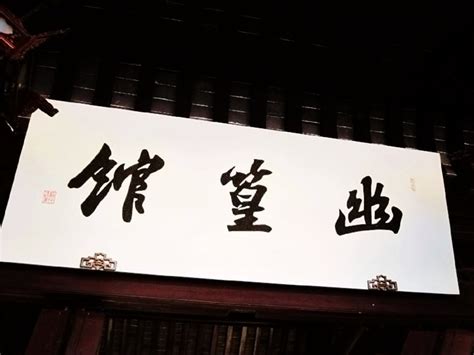 幽篁館